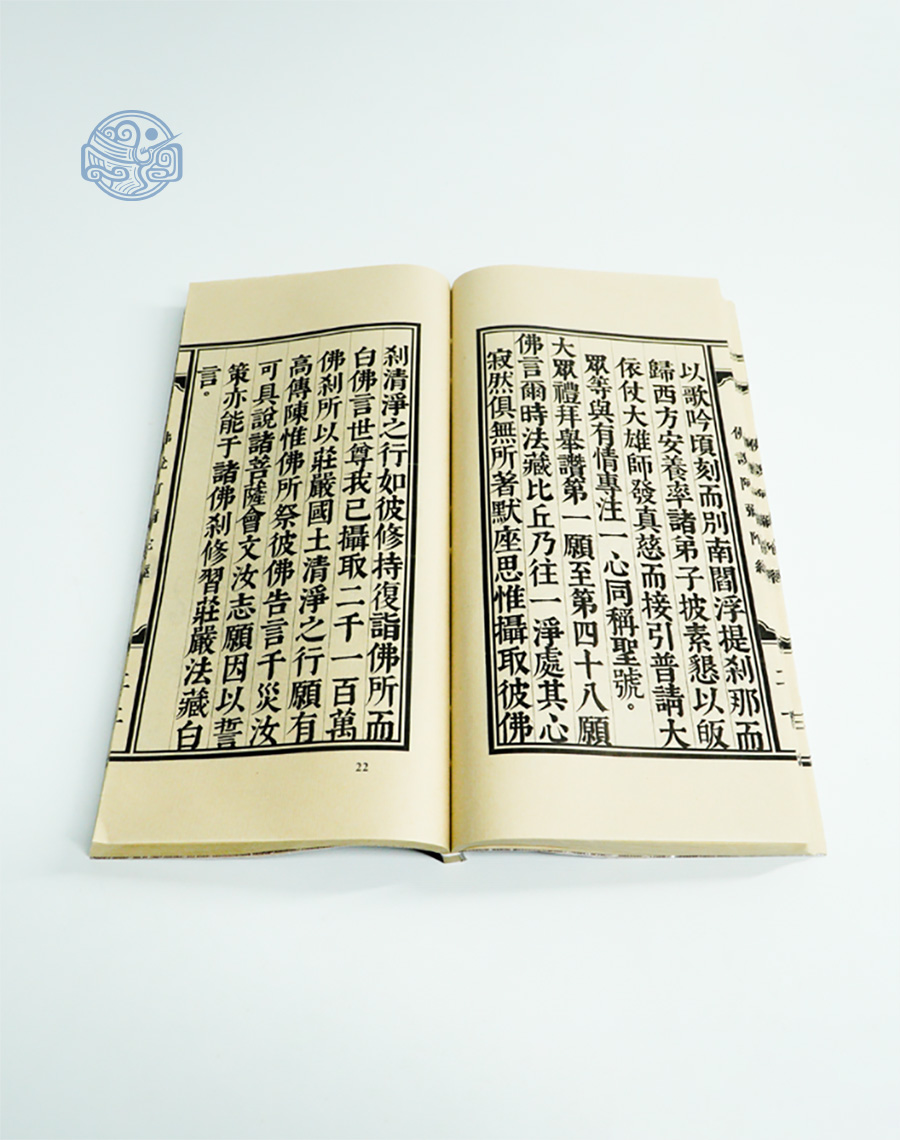 以歌吟頃刻而別南閻浮提剎那而
歸西方安養率諸弟子披素懇以皈
依仗大雄師發真慈而接引普請大
眾等與有情專注一心同稱聖號。
大眾禮拜舉讚第一願至第四十八願
佛言爾時法藏比丘乃往一淨處其心
寂然俱無所著默座思惟攝取彼佛
剎清淨之行如彼修持復詣佛所而
白佛言世尊我已攝取二千一百萬
佛剎所以莊嚴國土清淨之行願有
高傳陳惟佛所祭彼佛告言千災汝
可具說諸菩薩會文汝志願因以誓
策亦能于諸佛剎修習莊嚴法藏白
言。
二十二
22